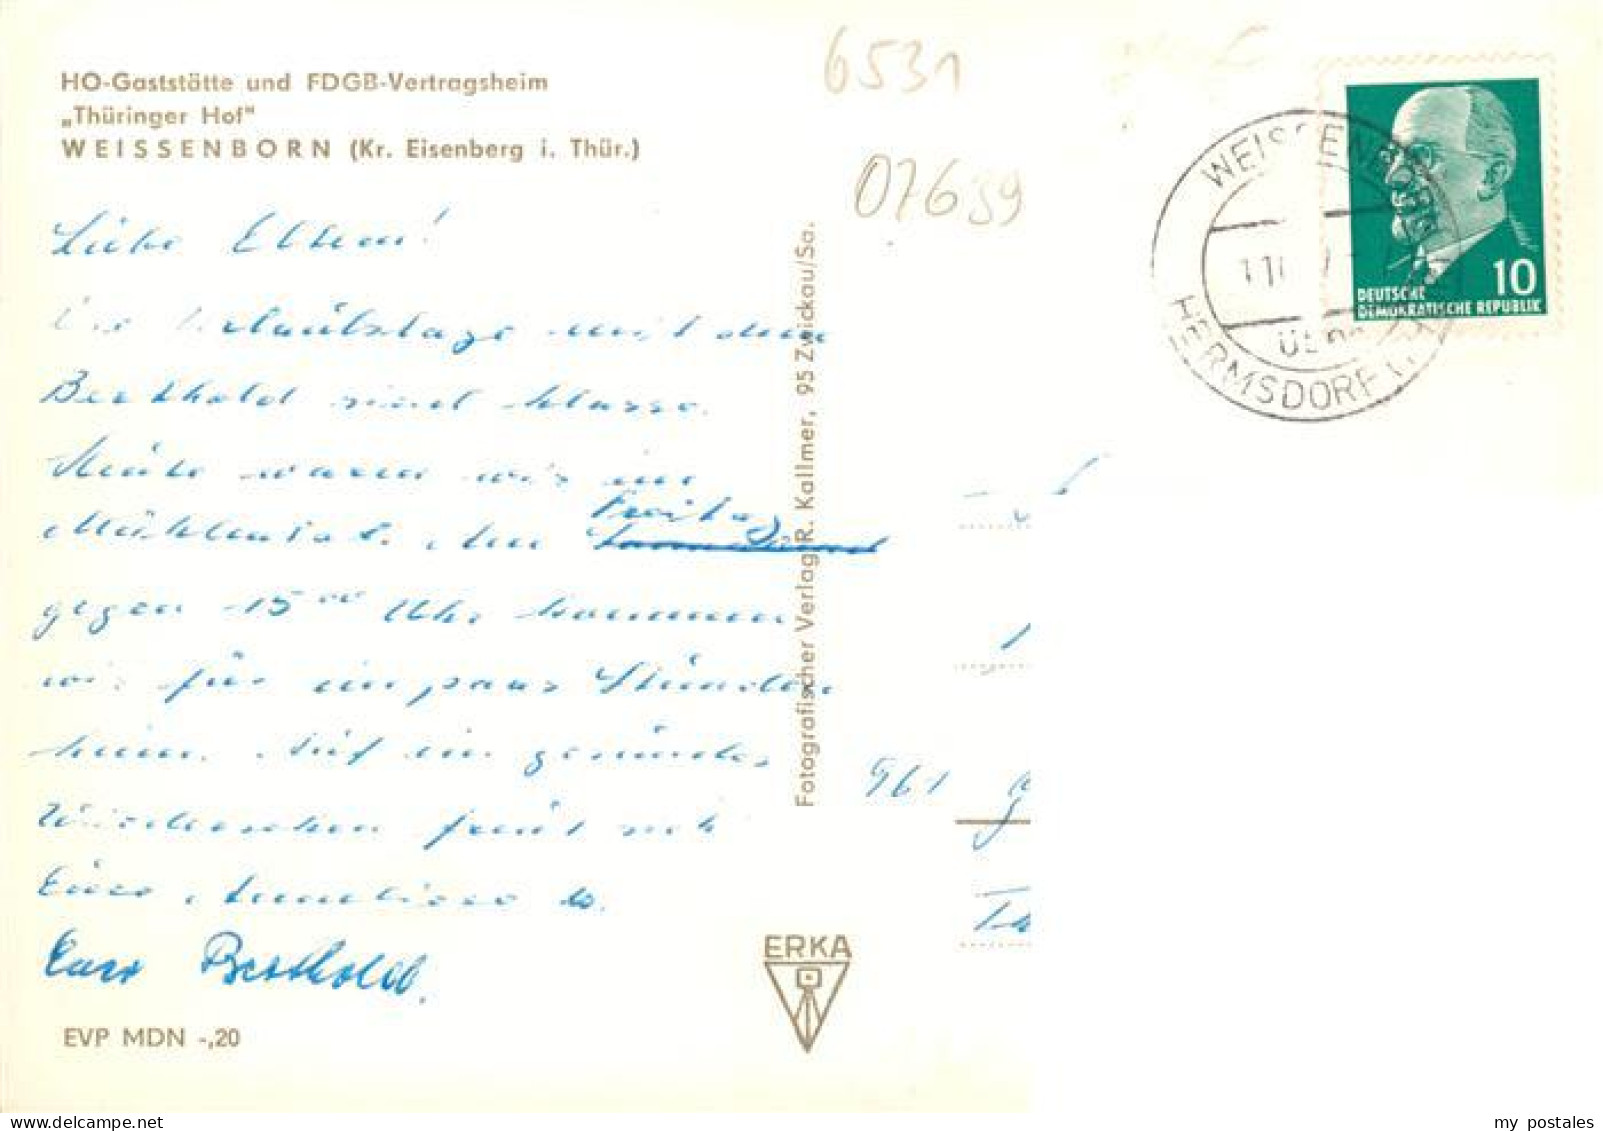 HO-Gaststätte und FDGB-Vertragsheim
„Thüringer Hof"
WEISSENBORN (Kr. Eisenberg i. Thür.)
Liebe Eltern!
Die Urlaubstage mit dem
Berthold sind klasse.
Heute waren wir im
Mühlental. Am Freitag
gegen 15 00 Uhr kommen
wir für ein paar Stunden
heim. Auf ein gesundes
Wiedersehen freut sich
Eure Anneliese u.
Euer Berthold.
EVP MDN -,20
Fotografischer Verlag R. Kallmer, 95 Zwickau/Sa.
ERKA
6531
07639
WEISSENBORN
ÜBER
HERMSDORF
10
DEUTSCHE
DEMOKRATISCHE REPUBLIK
961
my postales